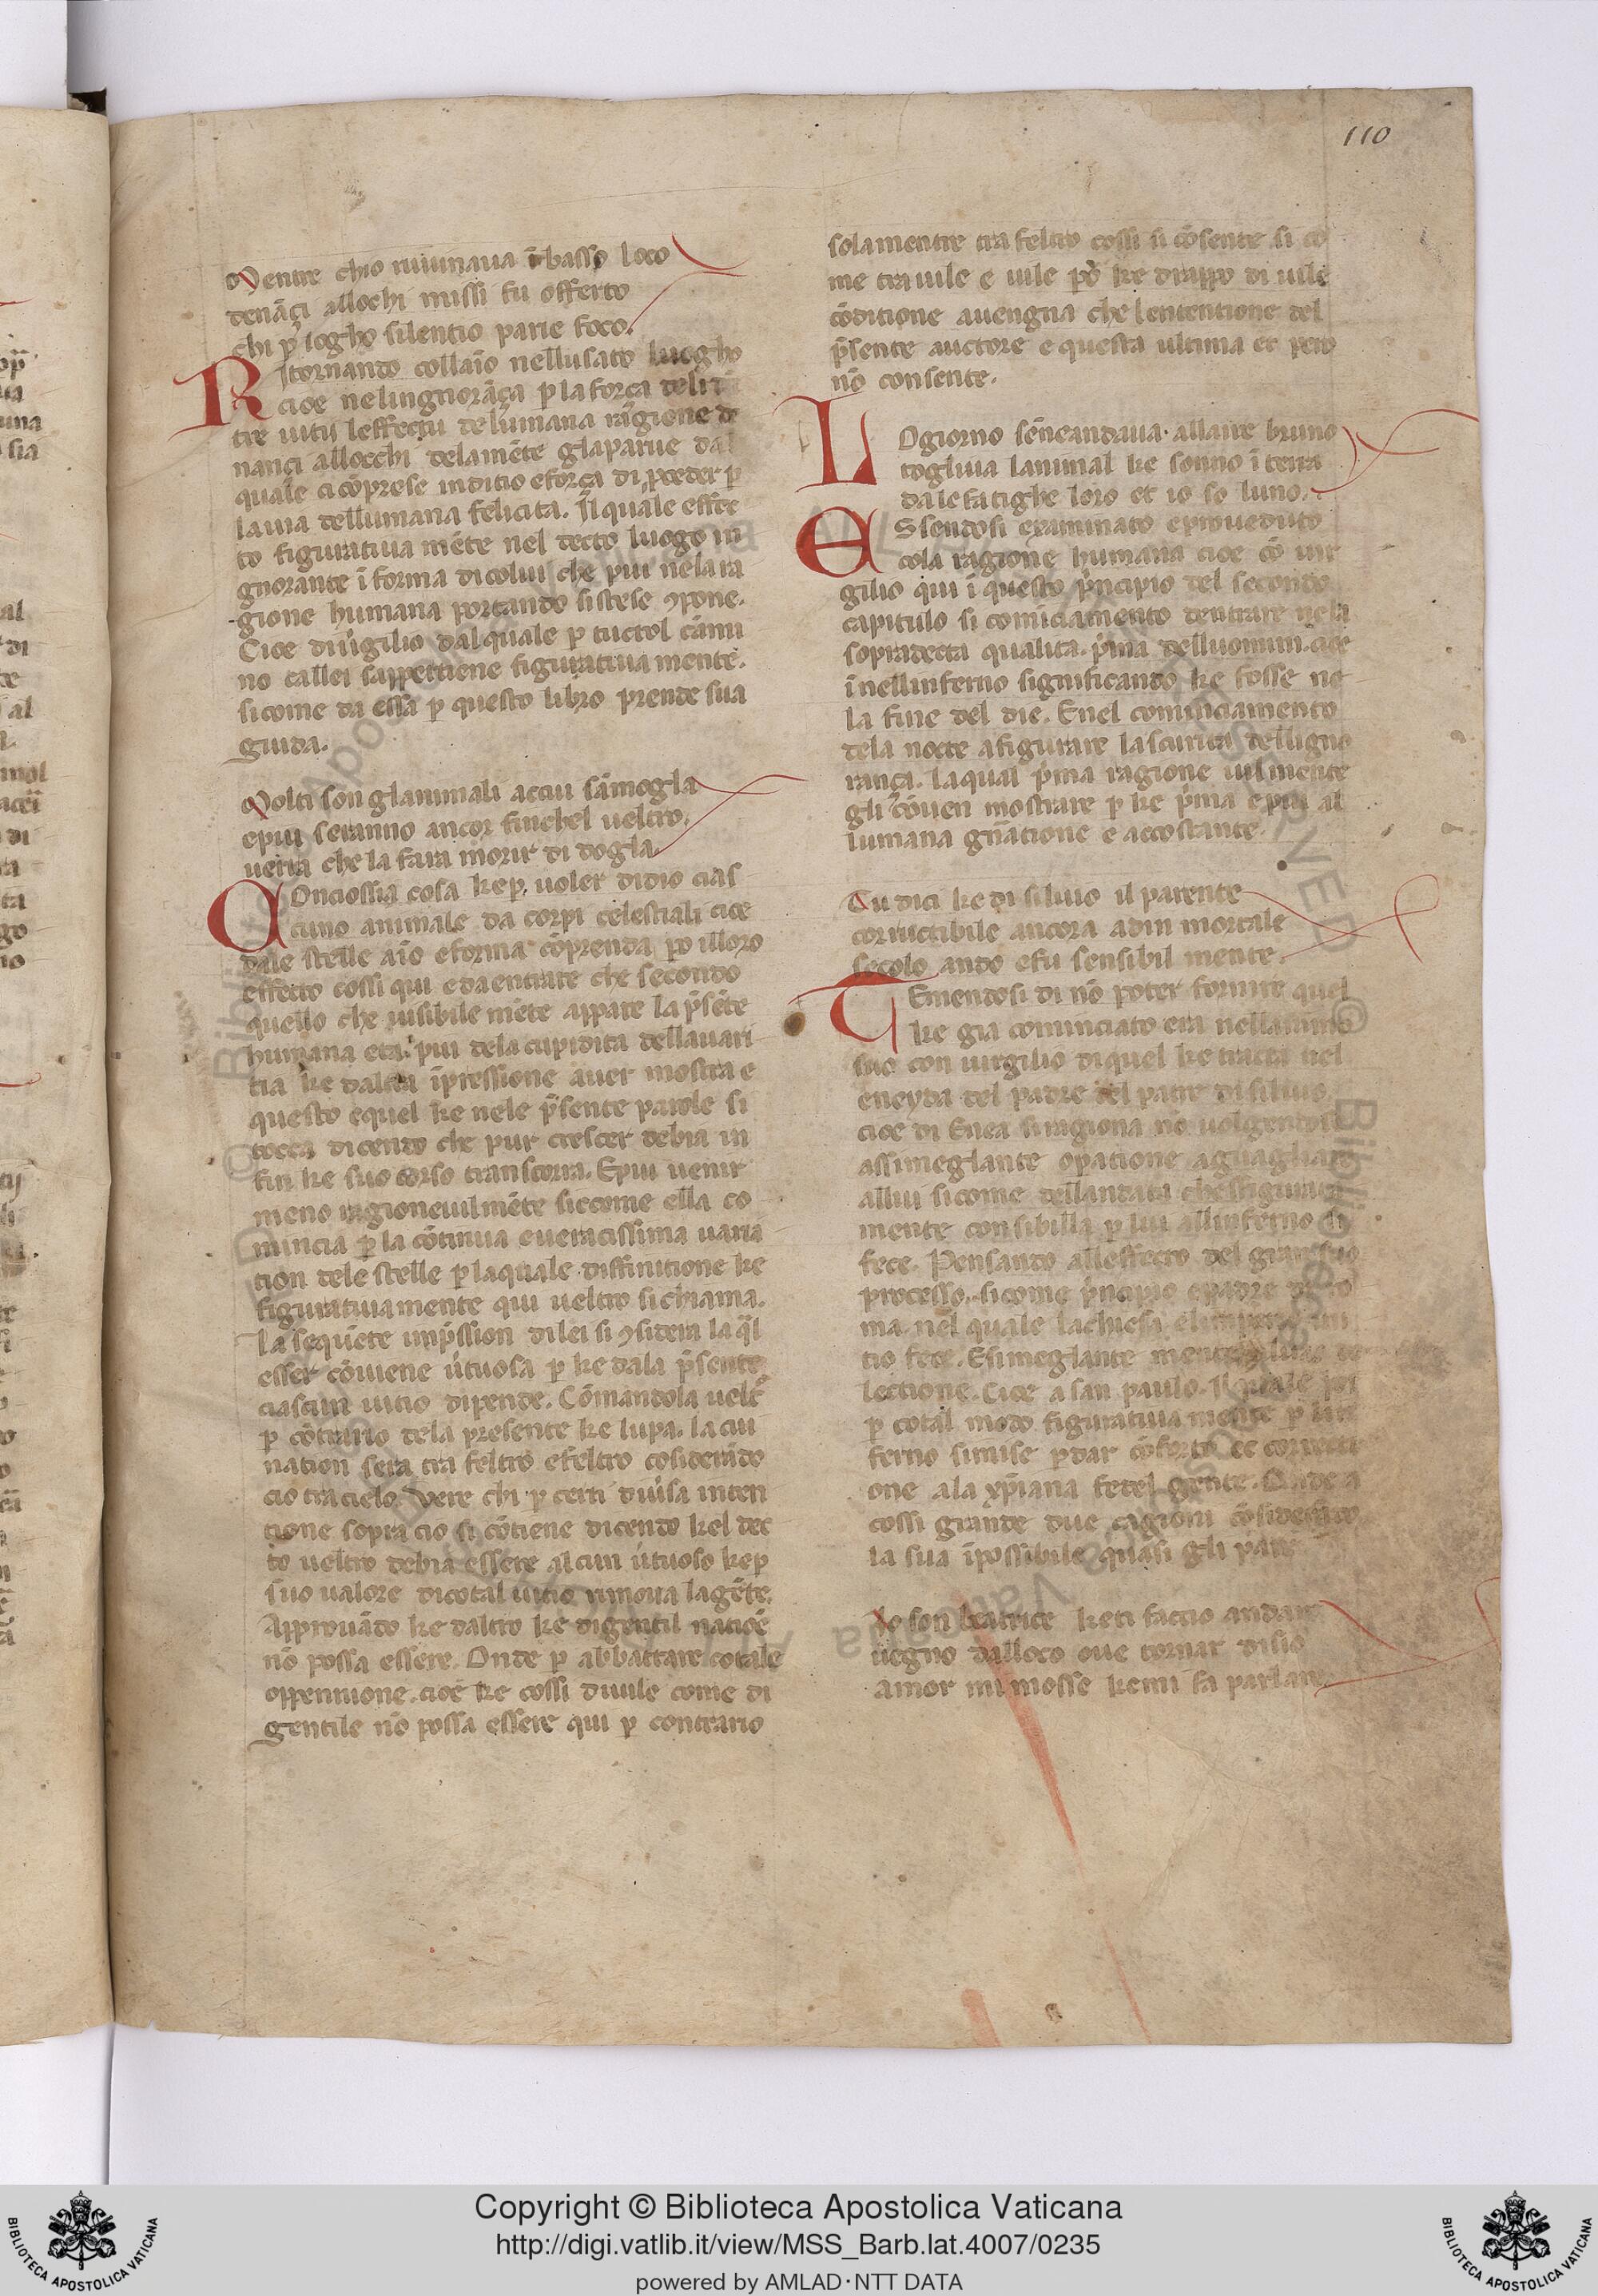 110
Mentre chio ruuinaua ī basso loco
denāçi allochi missi fu offerto
chi ꝑ logho silentio parie foco.
Rstornando collaīo nellusato luogho
cioe nelingnorāça ꝑ la força deli
tre uitij leffectu delumana ragione de
nançi allocchi delamēte glaparue dal
quale ci cōprese inditio e força di ꝓceder ꝑ
la uia dellumana felicita. Il quale effec
to figuratiua mēte nel decto luogo in
gnorante ī forma di colui che piu nela ra
gione humana portando si stese ꝯpone.
Cioe diuigilio dalquale ꝑ tuctol cāmi
no callei sappertiene figuratiua mente.
si come da essa ꝑ questo libro prende sua
guida.
Molti son glanimali acciu sāmogla
e piu seranno ancor finchel ueltro.
uerra che la fara morir di dogla.
COnciossia cosa keꝑ uoler didio cias
cuno animale da corpi celestiali cioe
dale stelle aīo e forma cōprenda ꝑo illoro
effecto cossi qui e da entrare che secondo
quello che uisibile mēte appare la p̄sēte
humana eta piu dela cupidita dellauari
tia ke daltra īpressione auer mostra e
questo e quel ke nele p̄sente parole si
tocca dicendo che pur crescer debia in
fin ke suo corso transcorra. E piu uenir
meno ragioneuilmēte siccome ella co
mincia ꝑ la cōtinua eueracissima uaria
tion dele stelle ꝑ laquale diffinitione ke
figuratiuamente qui ueltro si chiama.
La sequēte imp̄ssion di lei si ꝯsidera la q̄l
esser cōuiene u̓tuosa ꝑ ke dala p̄sente
ciascun uitio dipende. Cōmandola uelt̄
ꝑ cōtrario dela presente ke lupa. la cui
nation sera tra feltro e feltro cosiderādo
cio tra cielo. Vere chi ꝑ certi diuisa inten
tione sopra cio si cōtiene dicendo kel dec
to ueltro debia essere alcun u̓tuoso keꝑ
suo ualore dicotal uitio rimoua lagēte.
Approuādo ke daltro ke digentil natioē
nō possa essere. Onde ꝑ abbattare cotale
oppennione. cioe ke cossi diuile come di
gentile nō possa essere qui ꝑ contrario
solamente tra feltro cossi si cōsente si co
me tra uile e uile ꝑo ke drappo di uile
cōditione auengna che lententione del
p̄sente auctore e questa ultima et pero
nō consente.
LOgiorno sēneandaua. allaire bruno
togliuia lanimal ke sonno ī terra
dale fatighe loro et io so luno.
ESsendosi examinato e proueduto
cola ragione humana cioe cō uir
gilio qui ī questo p̄ncipio del secondo
capitulo si comīciamento dentrare nela
sopradecta qualita. p̄ma delluomini. cioe
īnellinferno significando ke fosse ne
la fine del die. E nel cominciamento
dela nocte a figurare la scurita delligno
rança. Laqual p̄ma ragione uilmente
gli cōuen mostrare ꝑ ke p̄ma e piu al
lumana gn̄atione e accostante.
Tu dici ke di siluio il parente
corructibile ancora adin mortale
secolo ando e fu sensibil mente.
TEmendosi di nō poter fornire quel
ke gia cominciato era nellanimo
suo con uirgilio di quel ke tracta nel
eneyda del padre del patre di siluio.
cioe di Enea si ragiona nō uolgendosi
assimeglante oꝑatione aguagliare
allui sicome dellandata che figurata
mente con sibilla ꝑ lui allinferno si
fece. Pensando alleffecto del gran suo
processo. sicome p̄ncipio e padre di ro
ma. nel quale la chiesa e
tio fece. E simeglante mente
lectione. Cioe a san paulo. Il quale poi
ꝑ cotal modo figuratiua mente ꝑ lin
ferno si mise ꝑ dar cōforto et
one ala xp̄iana fedel gente. Onde a
cossi grande due cagioni cōsiderādo
la sua īpossibile quasi gli pare
Io son beatrice keti faccio andare
uegno dalloco oue tornar disio
amor mi mosse kemi fa parlare.
Copyright © Biblioteca Apostolica Vaticana
http://digi.vatlib.it/view/MSS_Barb.lat.4007/0235
powered by AMLAD·NTT DATA
BIBLIOTECA APOSTOLICA VATICANA
BIBLIOTECA APOSTOLICA VATICANA